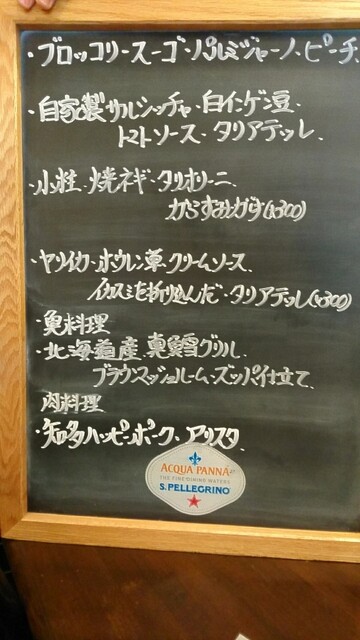 ・ブロッコリースーゴ・パルミジャーノ、ピーチ、
・自家製サルシッチャ、白インゲン豆、
トマトソース、タリアテッレ、
・小柱、焼ネギ・タリオリーニ
からすみがけ(+300)
・ヤリイカ・ホウレン草、クリームソース、
イカスミを折り込んだ・タリアテッレ(+300)
・魚料理
・北海道産、真鱈グリル、
ブラウンマッシュルーム、ズッパ仕立て、
肉料理
・知多ハッピーポーク、アリスタ、
ACQUA PANNA
THE FINE DINING WATERS
S.PELLEGRINO